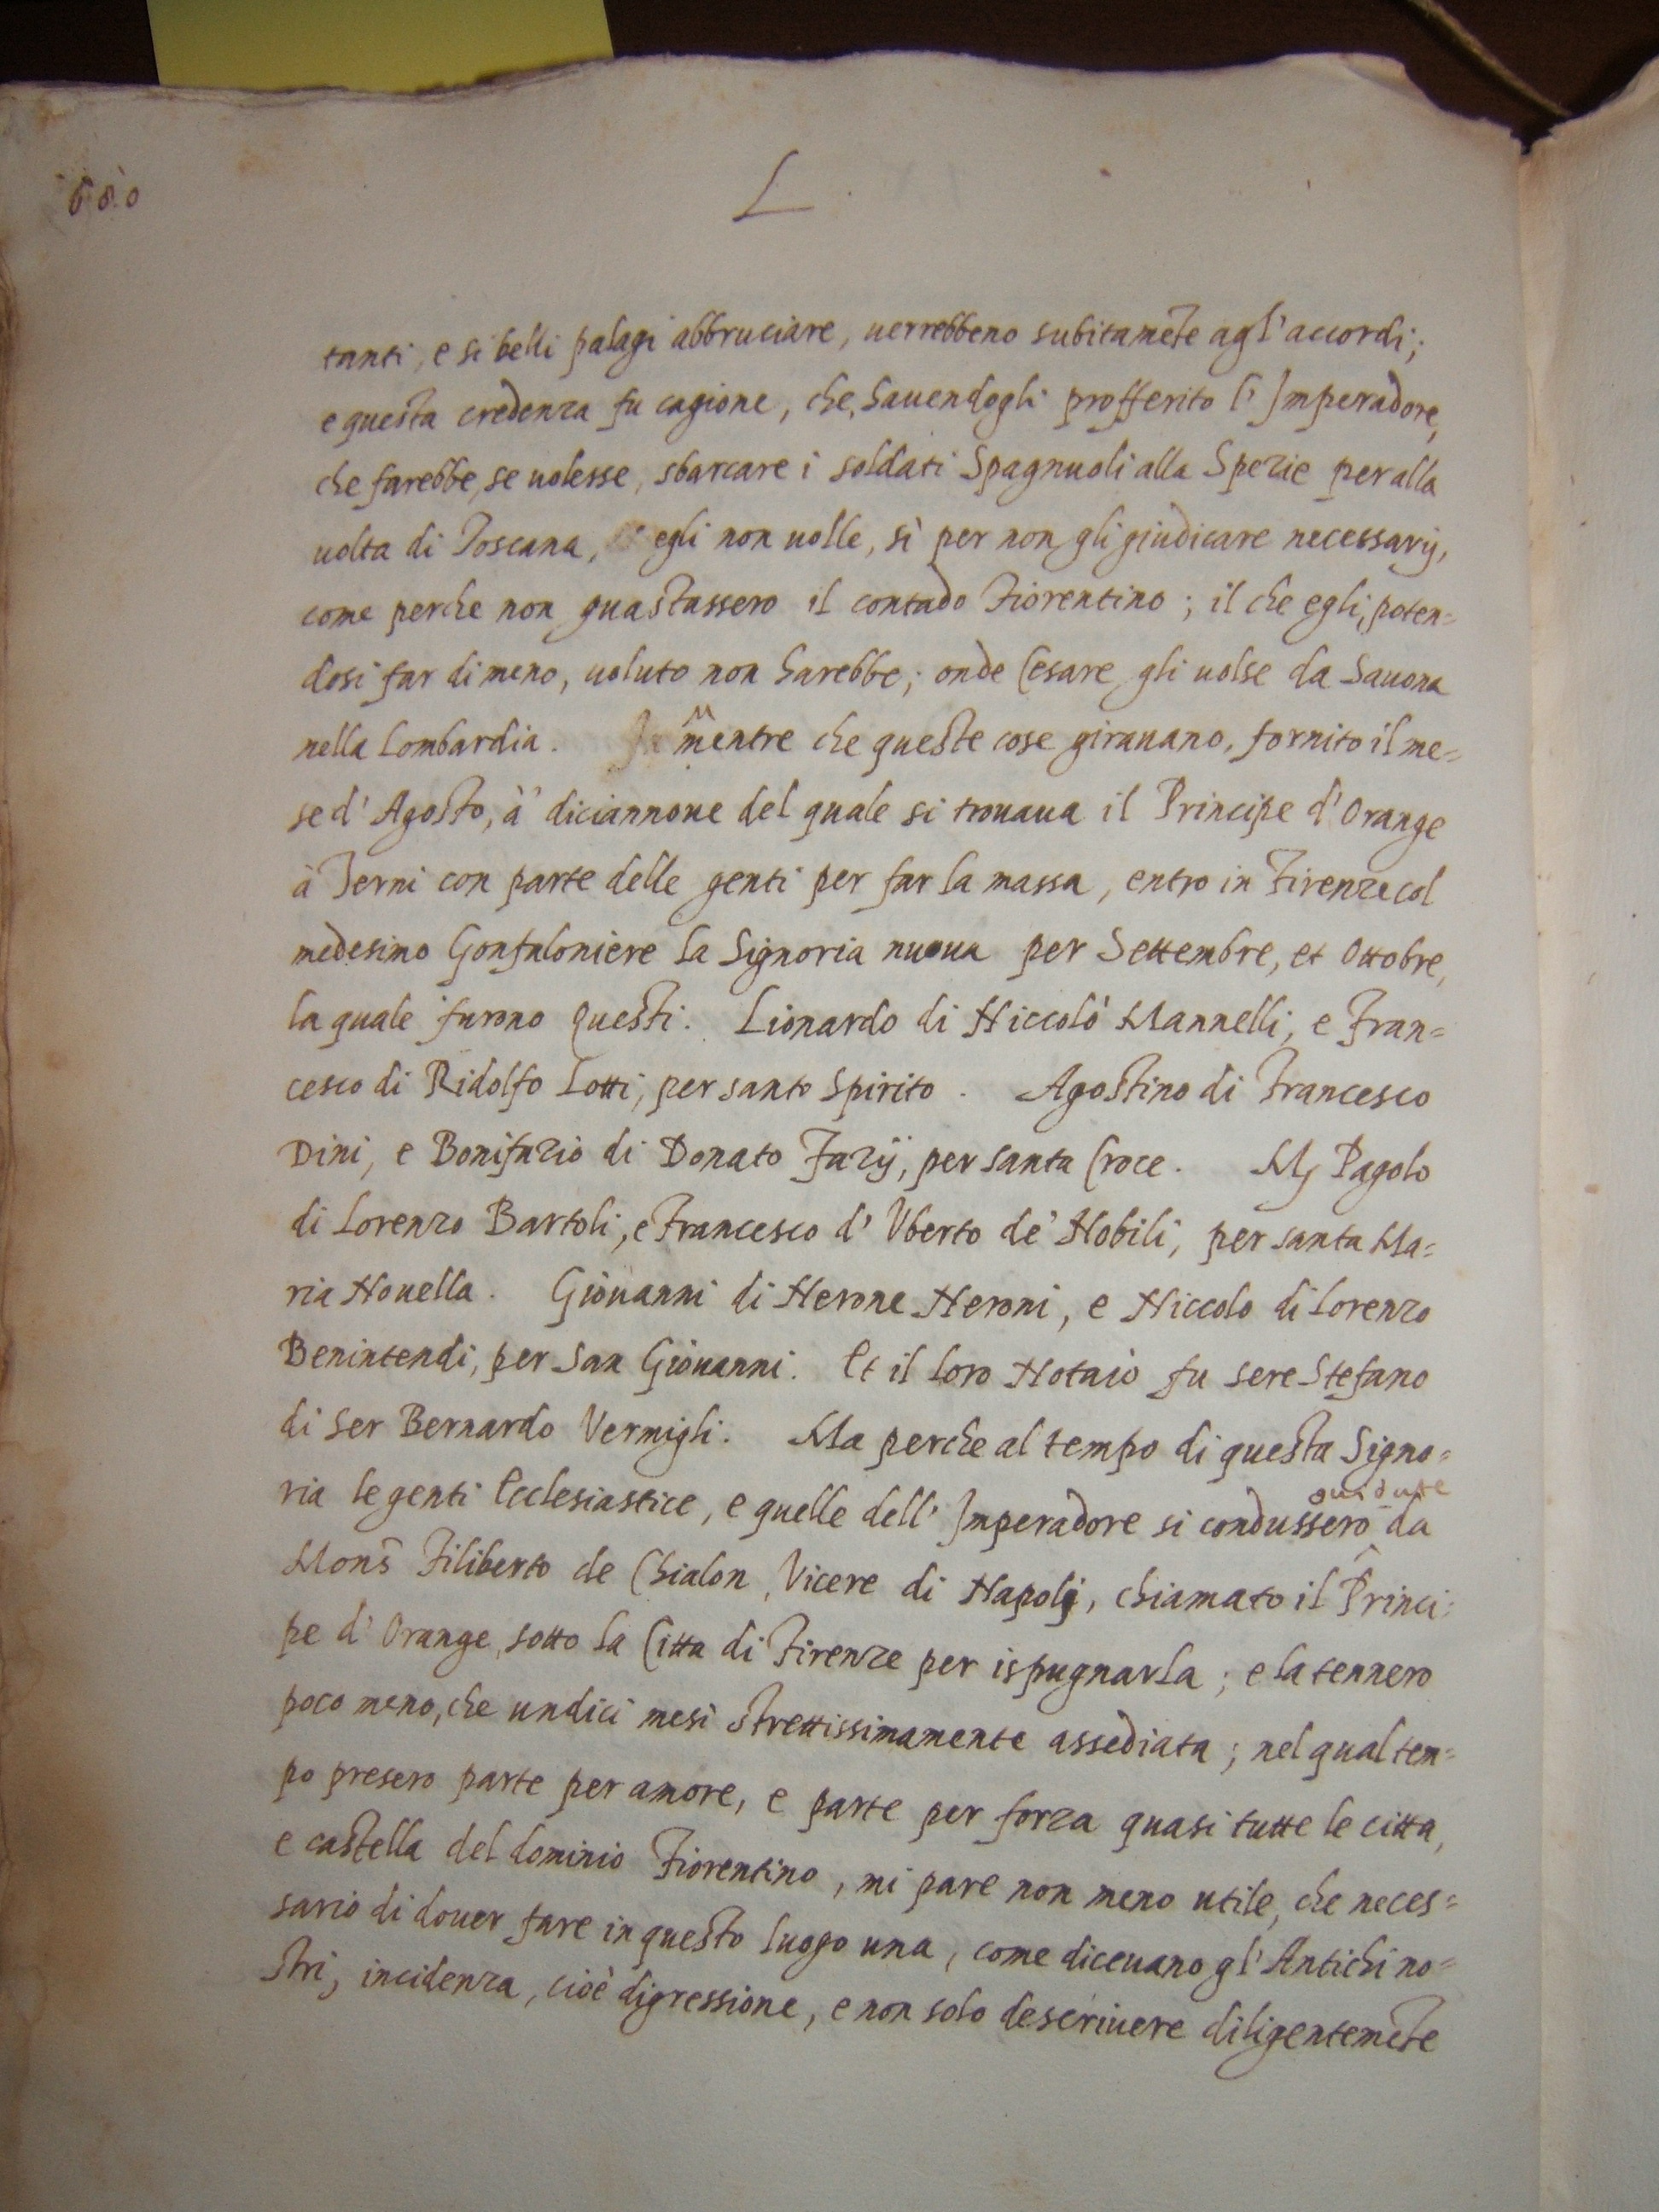 680
L
tanti, e si belli palagi abbruciare, uerrebbeno subitamẽte agl'accordi;
e questa credenza fu cagione, che, hauendogli profferito l'Imperadore,
che farebbe, se uolesse, sbarcare i soldati Spagnuoli alla Spezie per alla
uolta di Toscana, egli non uolle, sì per non gli giudicare necessarij,
come perche non guastassero il contado Fiorentino; il che egli, poten=
dosi far di meno, uoluto non harebbe; onde Cesare gli uolse da Sauona
nella Lombardia. Mentre che queste cose girauano, fornito il me=
se d'Agosto, à diciannoue del quale si trouaua il Principe d'Orange
à Terni con parte delle genti per far la massa, entro in Firenze col
medesimo Gonfaloniere la Signoria nuoua per Settembre, et Ottobre,
la quale furono questi. Lionardo di Niccolò Mannelli, e Fran=
cesco di Ridolfo Lotti, per santo Spirito. Agostino di Francesco
Dini, e Bonifazio di Donato Fazij, per santa Croce. M Pagolo
di Lorenzo Bartoli, e Francesco d'Vberto de' Nobili, per santa Ma=
ria Nouella. Giouanni di Nerone Neroni, e Niccolo di Lorenzo
Benintendi, per San Giouanni. Et il loro Notaio fu sere Stefano
di Ser Bernardo Vermigli. Ma perche al tempo di questa Signo=
ria le genti Ecclesiastice, e quelle dell'Imperadore si condussero guidate da
Mons̃ Filiberto de Chialon, Vicere di Napoli, chiamato il Princi=
pe d'Orange, sotto la Citta di Firenze per ispugnarla; e la tennero
poco meno, che undici mesi strettissimamente assediata; nel qual tem=
po presero parte per amore, e parte per forza quasi tutte le citta,
e castella del dominio Fiorentino, mi pare non meno utile, che neces=
sario di douer fare in questo luogo una, come diceuano gl'Antichi no=
stri, incidenza, cioè digressione, e non solo descriuere diligentemẽte